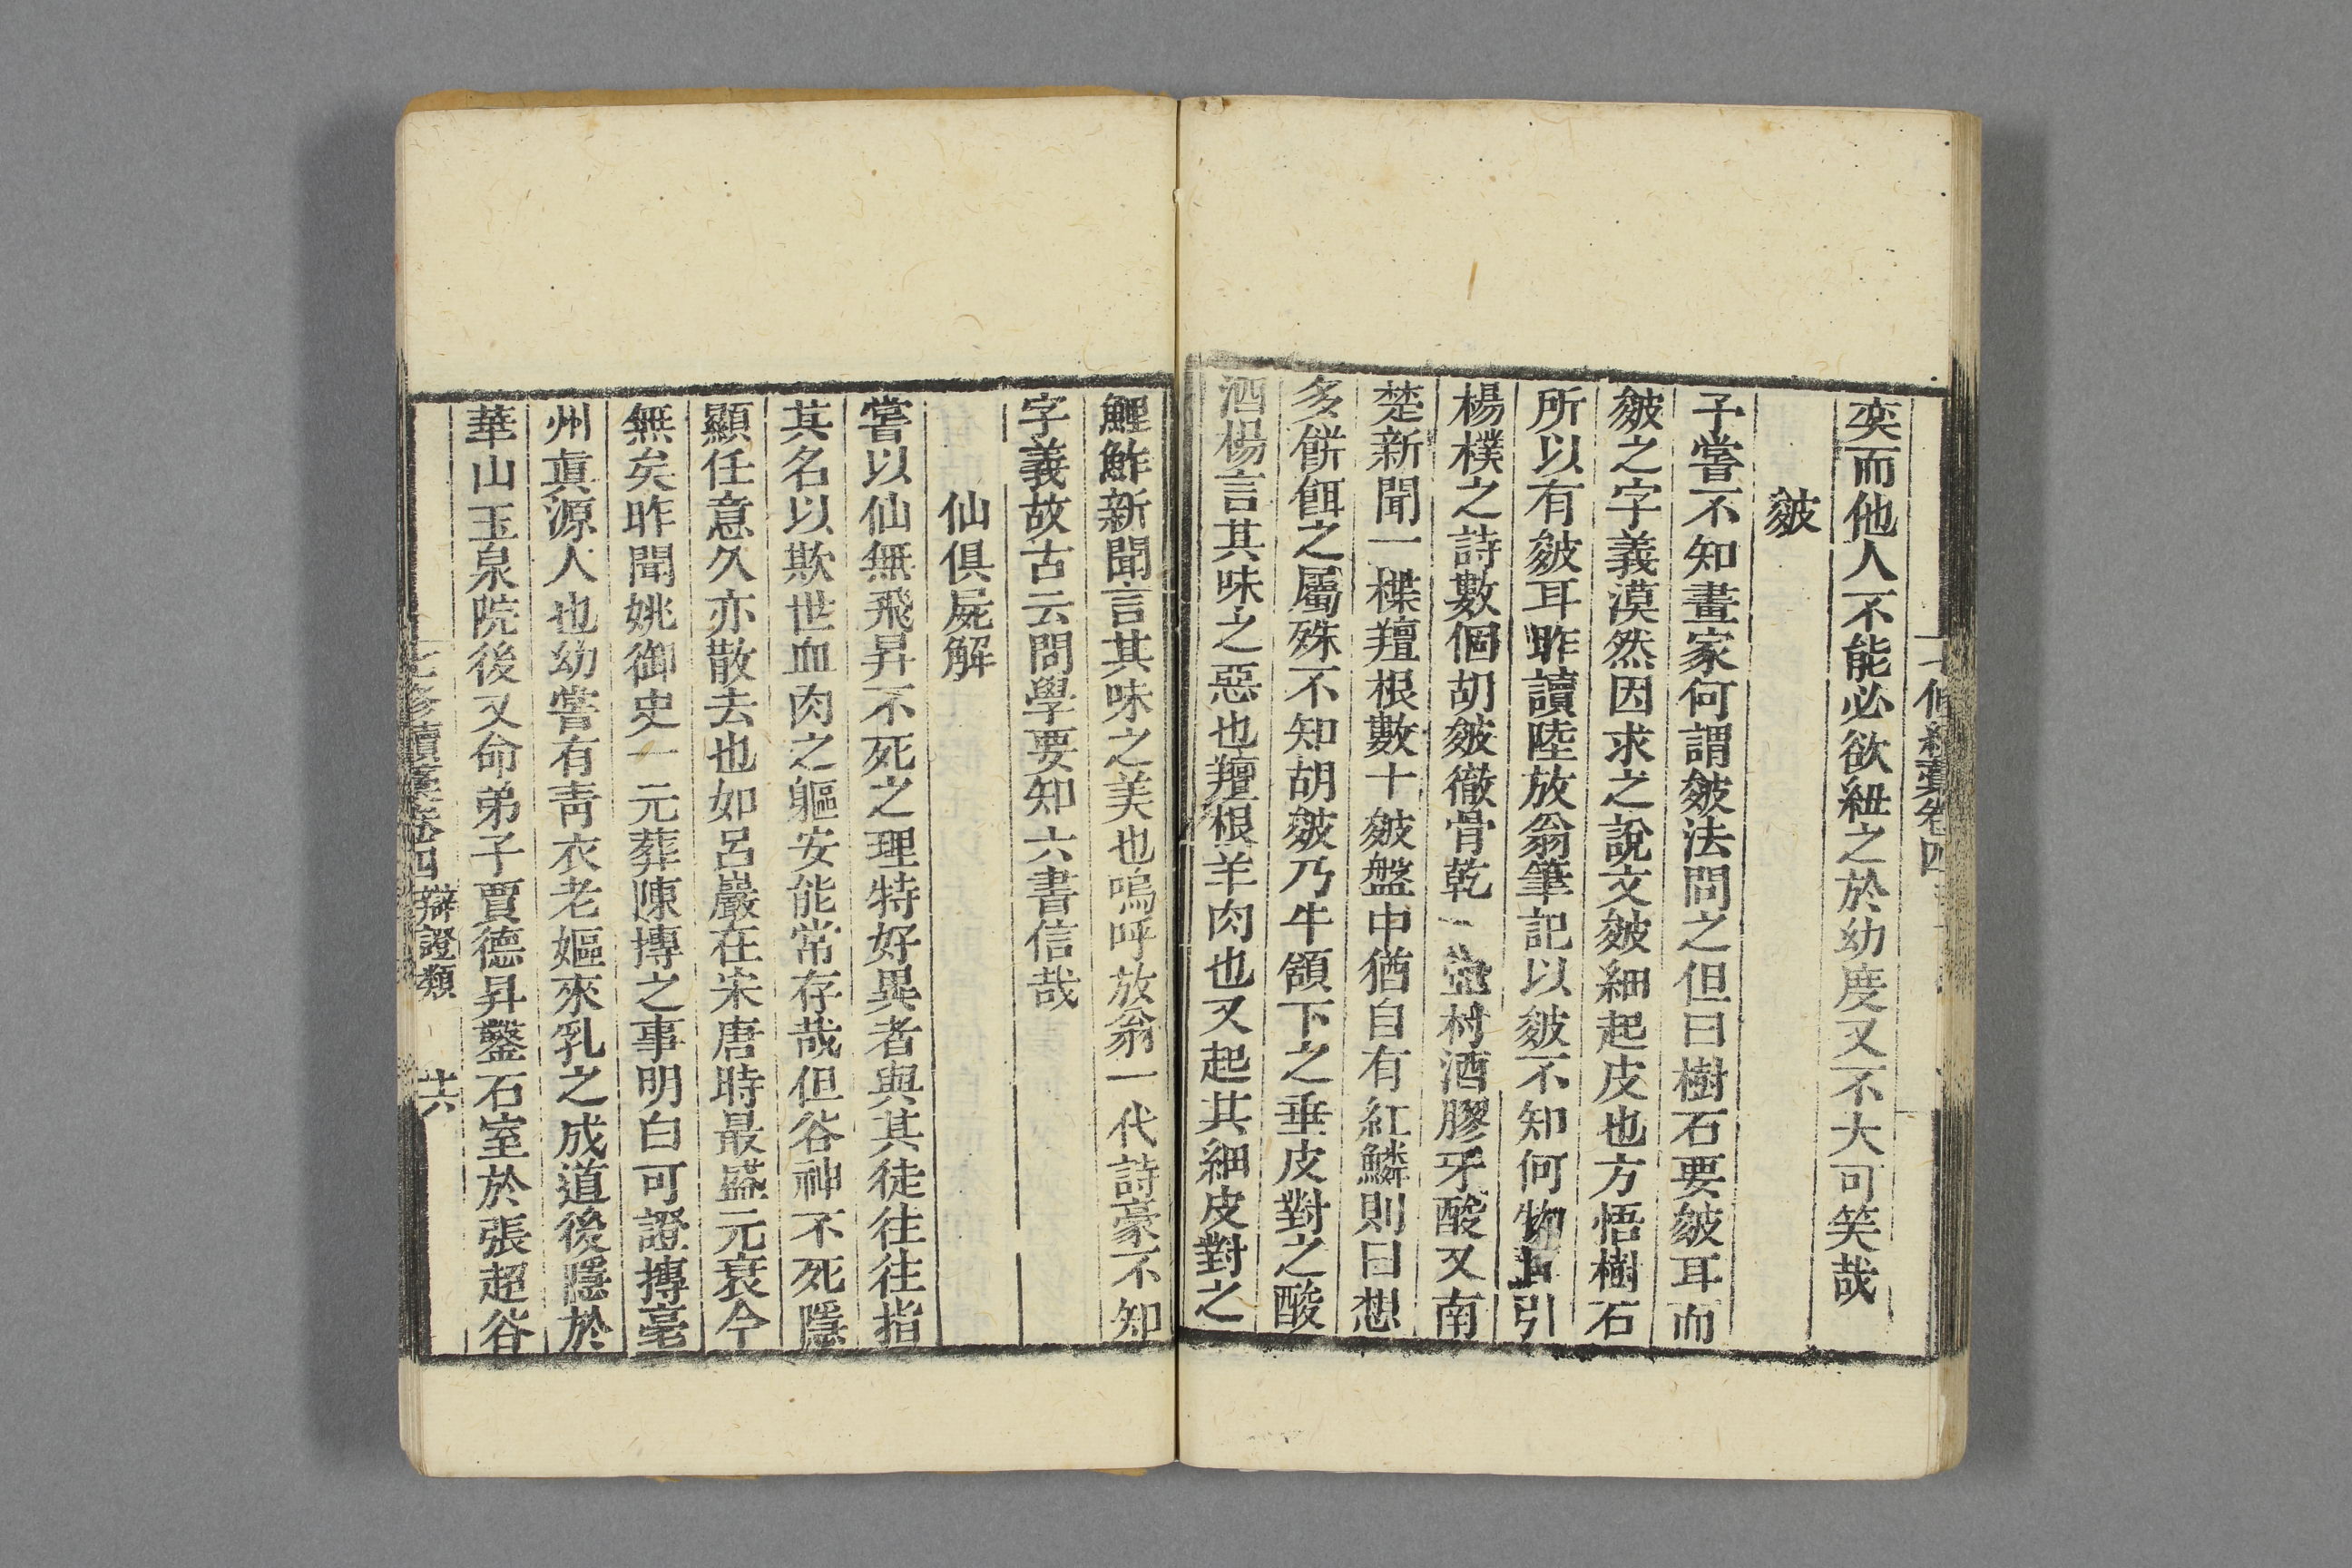 奕而他人不能必欲紐之於幼度又不大可笑哉
皴
予嘗不知畫家何謂皴法問之但曰樹石要皴耳而
皴之字義漠然因求之說文皴細起皮也方悟樹石
所以有皴耳昨讀陸放翁筆記以皴不知何物且引
楊樸之詩數個胡皴徹骨乾一壺村酒膠牙酸又南
楚新聞一楪羶根數十皴盤中猶自有紅鱗則曰想
多餅餌之屬殊不知胡皴乃牛頷下之垂皮對之酸
酒楊言其味之惡也羶根羊肉也又起其細皮對之
鯉鮓新聞言其味之美也嗚呼放翁一代詩豪不知
字義故古云問學要知六書信哉
仙俱屍解
嘗以仙無飛昇不死之理特好異者與其徒往往指
其名以欺世血肉之軀安能常存哉但谷神不死隱
顯任意久亦散去也如呂巖在宋唐時最盛元衰今
無矣昨聞姚御史一元葬陳摶之事明白可證摶亳
州真源人也幼嘗有靑衣老嫗來乳之成道後隱於
華山玉泉院後又命弟子賈德昇鑿石室於張超谷
七修續藁卷四 辯證類 廿六